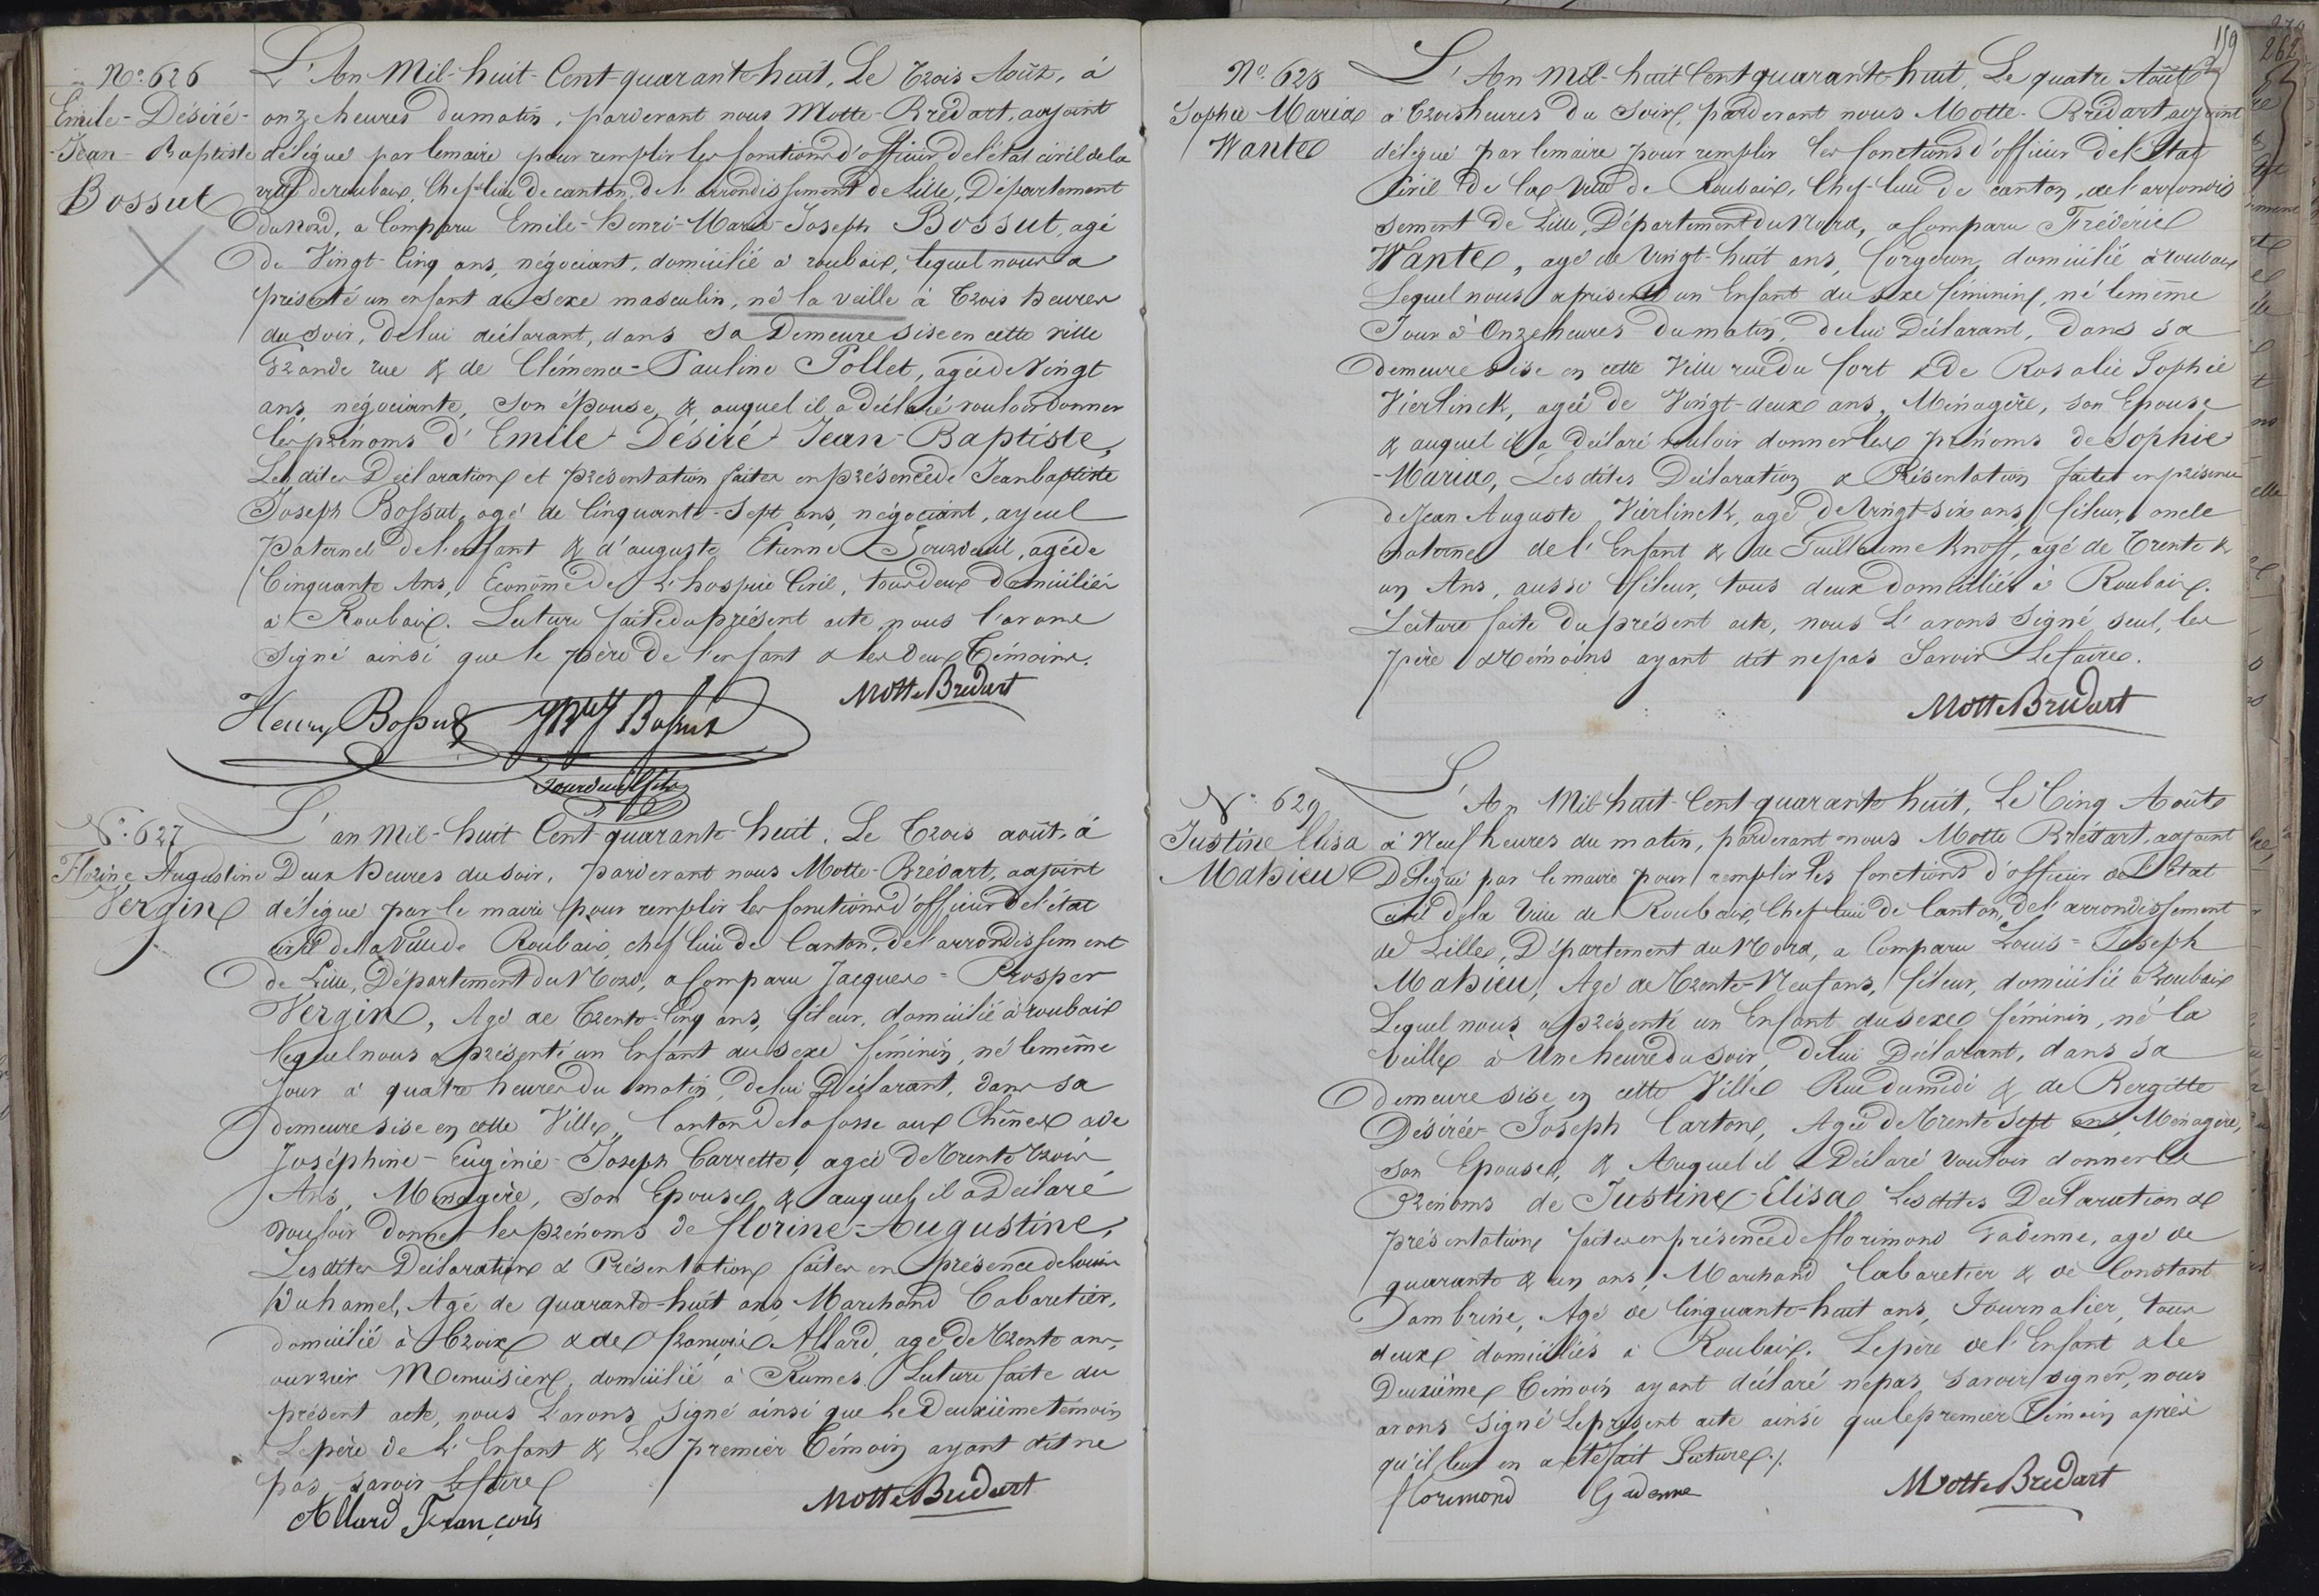 N.º 626
Emile-Désiré-
-Jean-Baptiste
Bossut
L'An Mil-huit-Cent-quarante huit, Le Trois Août, à
onze heures du matin, pardevant nous Motte-Brédart, adjoint
délégué par le maire pour remplir les fonctions d'officier de l'état civil de la
ville de roubaix, Chef-lieu de canton, de l'arrondissement de Lille, Département
du Nord, a Comparu Emile-Henri-Marie-Joseph Bossut, agé
de Vingt-Cinq ans, négociant, domicilié à roubaix, lequel nous a
présenté un enfant du sexe masculin, né la veille à Trois heures
du soir, de lui déclarant, dans sa Demeure sise en cette ville
Grande rue & de Clémence-Pauline Pollet, agée de Vingt
ans, négociante, son épouse, & auquel il a déclaré vouloir donner
les prénoms d'Emile-Désiré-Jean-Baptiste,
Les dites Déclaration et présentation faites en présence de Jean baptiste
Joseph Bossut, agé de Cinquante-Sept ans, négociant, ayeul
paternel de l'enfant & d'auguste Etienne Lourdeuil, agé de
Cinquante Ans, Econôme de L'hospice Civil, tous deux Domiciliés
à Roubaix. Lecture faite du présent acte, nous l'avons
signé ainsi que le père de l'enfant & les deux Témoins.
Motte Bredart
Henry Bossut Bossut
N.º 627
Florine Augustine
Vergin
L'an Mil-huit Cent-quarante-huit, Le Trois août, à
Deux Heures du soir, pardevant nous Motte-Brédart, adjoint
délégué par le maire pour remplir les fonctions d'officier de l'état
civil de la Ville de Roubaix, chef lieu de Canton, de l'arrondissement
de Lille, Département du Nord, a Comparu Jacques-Prosper
Vergin, Agé de Trente-Cinq ans, fileur, domicilié à roubaix
lequel nous a présenté un Enfant du sexe féminin, né le même
jour à quatre heures du matin, de lui Déclarant, dans sa
demeure sise en cette Ville, Canton de la fosse aux Chênes & de
Joséphine-Eugénie-Joseph Carrette, agée de Trente Trois
Ans, Ménagère, son Epouse, & auquel il a Déclaré
vouloir donner les prénoms de florine-Augustine,
Les dites Déclaration & Présentation faites en présence de Louis
Duhamel, Agé de quarante-huit ans, Marchand Cabaretier,
domicilié à Croix & de françois Allard, agé de Trente ans,
ouvrier Menuisier, domicilié à Rumes. Lecture faite du
présent acte, nous L'avons signé ainsi que le Deuxième témoin
Le père de L'Enfant & Le premier Témoin ayant dit ne
pas savoir Le faire
Motte Bredart
Allard François
159
N.º 628
Sophie Maria
Wante
L'An Mil-huit Cent quarante huit, Le quatre Août
à Trois heures du Soir, pardevant nous Motte-Brédart, adjoint
délégué par le maire pour remplir les fonctions d'officier de l'Etat
Civil de la Ville de Roubaix, Chef-lieu de canton, de l'arrondis
sement de Lille, Département du Nord, a Comparu Fréderic
Wante, agé de Vingt-huit ans, forgeron, domicilié à roubaix
Lequel nous a présenté un Enfant du sexe féminin, né le même
Jour à Onze heures du matin, de lui Déclarant, dans sa
demeure sise en cette Ville rue du fort & De Rosalie Sophie
Vierlinck, agée de Vingt-deux ans, Ménagère, son Epouse
& auquel il a déclaré vouloir donner les prénoms de Sophie
-Maria, Les dites Déclaration & Présentation faites en présence
de Jean Auguste Vierlinck, agé de Vingt-six ans, fileur, oncle
maternel de l'Enfant & de Guillaume Knoff, agé de Trente &
un Ans, aussi fileur, tous deux domiciliés à Roubaix.
Lecture faite du présent acte, nous L'avons signé seul, les
père & Témoins ayant dit ne pas Savoir Le faire.
Motte Bredart
N.º 629
Justine Elisa
Mahieu
L'An Mil-huit-Cent-quarante huit, Le Cinq Août
à Neuf heures du matin, pardevant nous Motte Brédart, adjoint
Délégué par le maire pour remplir les fonctions d'officier de L'Etat
civil de la Ville de Roubaix, Chef lieu de Canton, de l'arrondissement
de Lille, Département du Nord, a Comparu Louis-Joseph
Mahieu, Agé de Trente-Neuf ans, fileur, domicilié à Roubaix
Lequel nous a présenté un Enfant du sexe féminin, né la
Veille à Une heure du soir, de lui Déclarant, dans sa
demeure sise en cette Ville Rue du midi & de Bergitte
Désirée-Joseph Carton, Agée de Trente Sept ans, Ménagère,
son Epouse, & Auquel il a Déclaré vouloir donner les
Prénoms de Justine-Elisa, Les dites Déclaration &
présentation faites en présence de florimond Gadenne, agé de
quarante & un ans, Marchand Cabaretier & de Constant
Dambrine, Agé de Cinquante-huit ans, Journalier, tous
deux domiciliés à Roubaix. Le père de l'Enfant & le
Deuxième Témoin ayant déclaré ne pas savoir signer, nous
avons signé Le présent acte ainsi que le premier Témoin après
qu'il leur en a été fait Lecture./.
Motte Bredart
florimond Gadenne